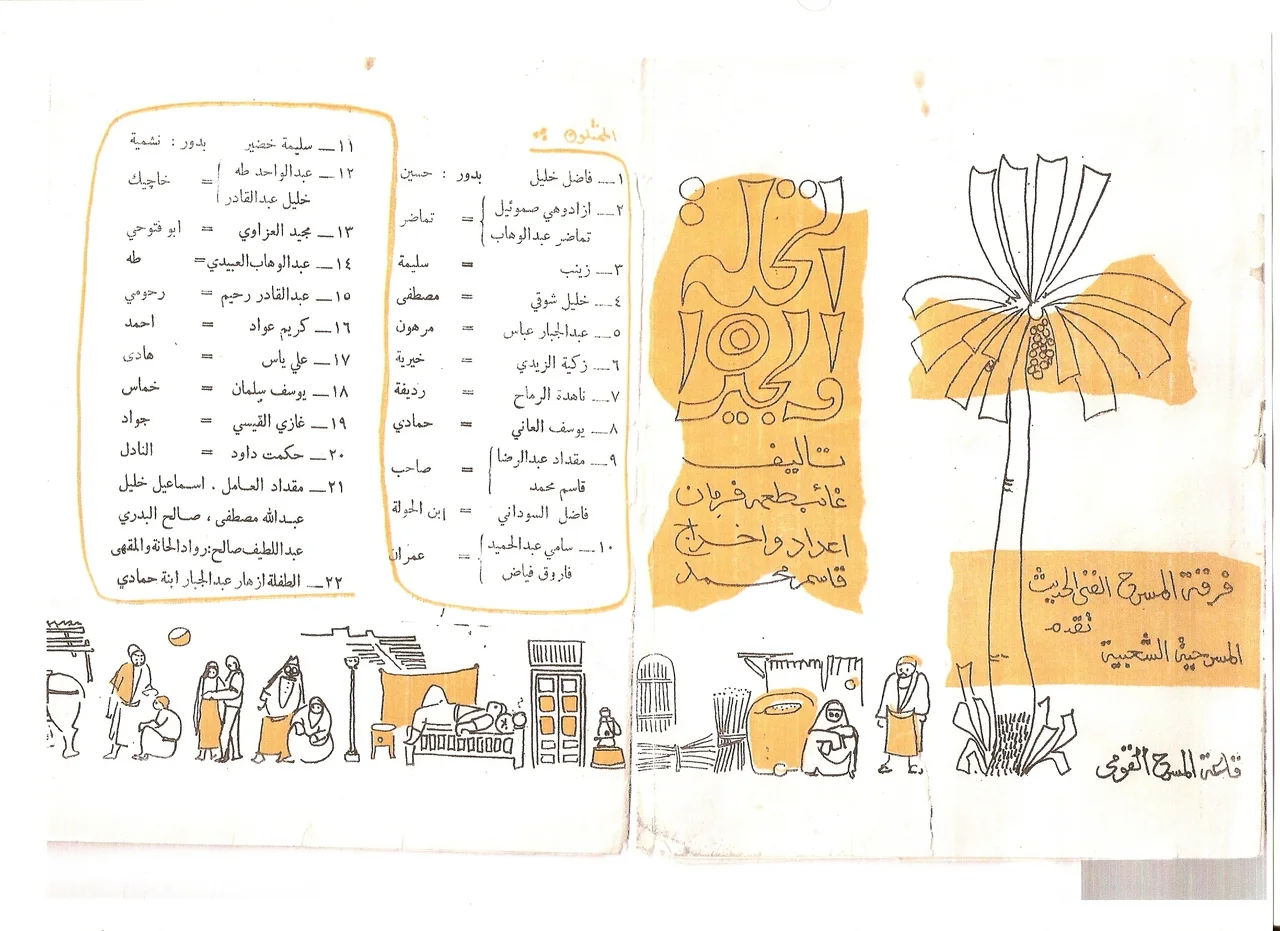 فرقة المسرح الفني الحديث
تقدم
المسرحية الشعبية
قاعة المسرح القومي
النخلة
والجيران
تاليف
غائب طعمه فرمان
اعداد واخراج
قاسم محمد
الممثلون
١ــ فاضل خليل بدور : حسين
٢ــ ازادوهي صموئيل
تماضر عبدالوهاب = تماضر
٣ــ زينب = سليمة
٤ــ خليل شوقي = مصطفى
٥ــ عبدالجبار عباس = مرهون
٦ــ زكية الزيدي = خيرية
٧ــ ناهدة الرماح = رديفة
٨ــ يوسف العاني = حمادي
٩ــ مقداد عبدالرضا
قاسم محمد = صاحب
فاضل السوداني = ابن الحولة
١٠ــ سامي عبدالحميد
فاروق فياض = عمران
١١ــ سليمة خضير بدور : نشمية
١٢ــ عبدالواحد طه
خليل عبدالقادر = خاچيك
١٣ــ مجيد العزاوي = ابو فتوحي
١٤ــ عبدالوهاب العبيدي = طه
١٥ــ عبدالقادر رحيم = رحومي
١٦ــ كريم عواد = احمد
١٧ــ علي ياس = هادى
١٨ــ يوسف سلمان = خماس
١٩ــ غازي القيسي = جواد
٢٠ــ حكمت داود = النادل
٢١ــ مقداد العامل . اسماعيل خليل
عبدالله مصطفى ، صالح البدري
عبداللطيف صالح : رواد الحانة والمقهى
٢٢ــ الطفلة ازهار عبدالجبار ابنة حمادي